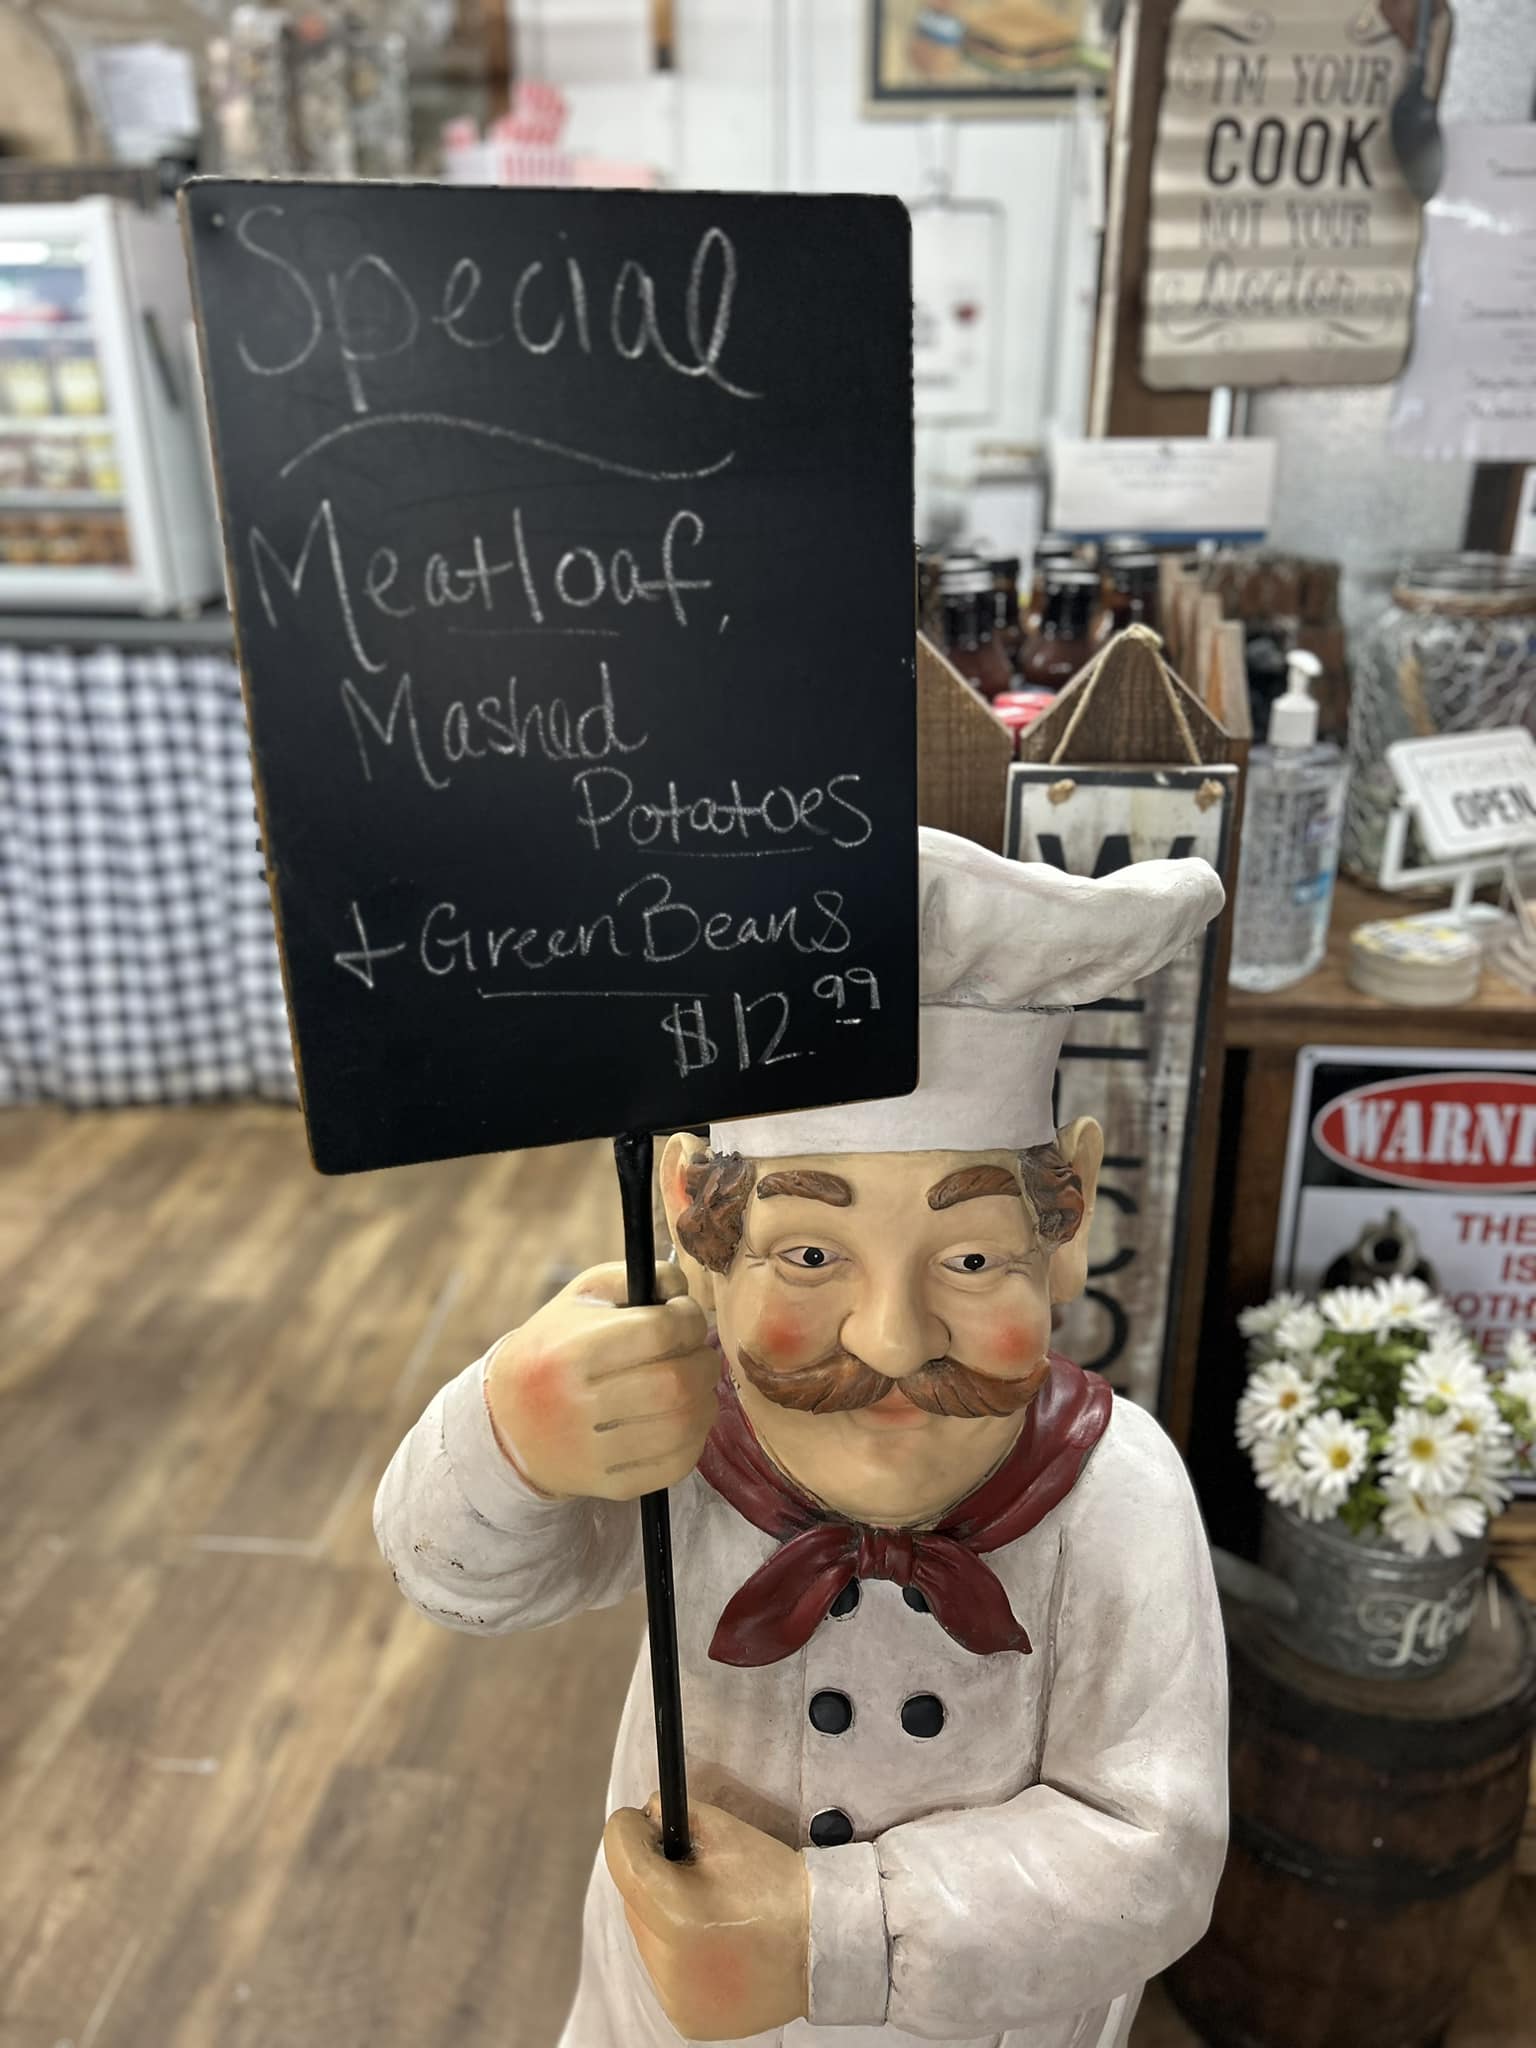 Special
Meatloaf,
Mashed
Potatoes
+ Green Beans
$12.99
I'M YOUR
COOK
NOT YOUR
Doctor
OPEN
W
WARNI
THE
IS
OTH